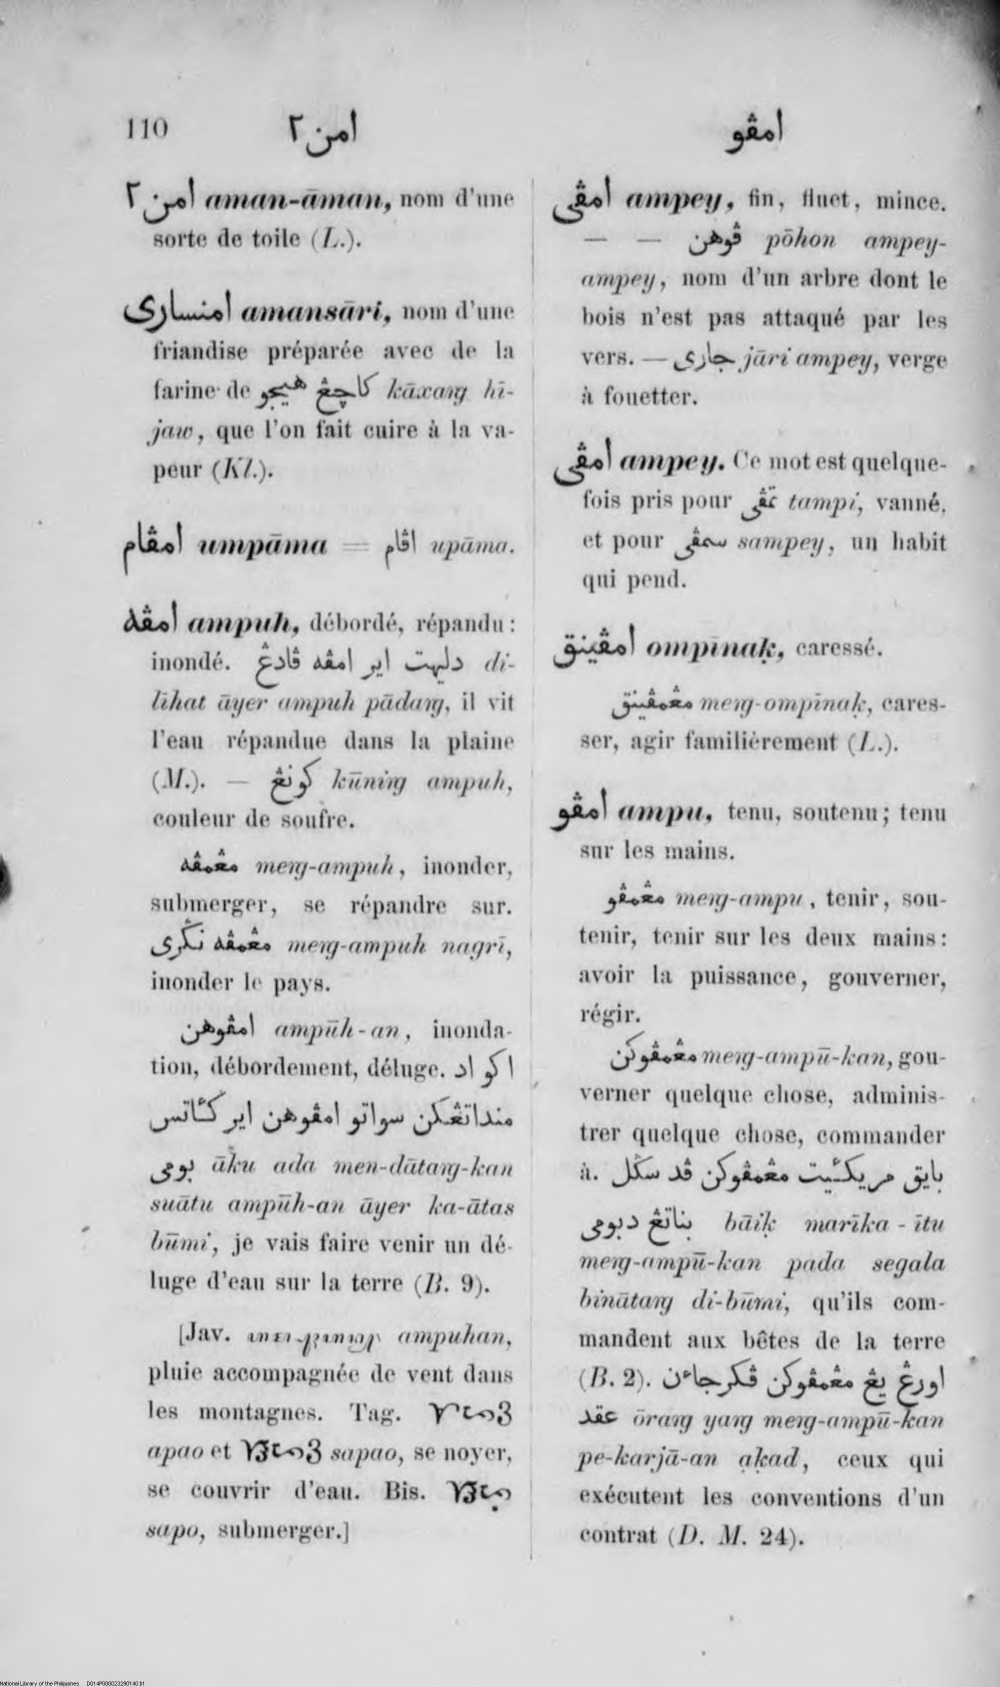 110
امن ٢
امڤو
امن ٢ aman-āman, nom d'une
sorte de toile (L.).
امنساری amansāri, nom d'une
friandise préparée avec de la
farine de كاچڠ هيجو kāxaŋ hī-
jaw, que l'on fait cuire à la va-
peur (Kl.).
امڤام umpāma = اڤام upāma.
امڤه ampuh, débordé, répandu:
inondé. دليهت اير امڤه ڤادڠ di-
līhat āyer ampuh pādaŋ, il vit
l'eau répandue dans la plaine
(M.). — كونڠ kūniŋ ampuh,
couleur de soufre.
مڠمڤه meŋ-ampuh, inonder,
submerger, se répandre sur.
مڠمڤه نݢری meŋ-ampuh nagrī,
inonder le pays.
امڤوهن ampūh-an, inonda-
tion, débordement, déluge. اكو اد
منداتڠكن سواتو امڤوهن اير كئاتس
بومی āku ada men-dātaŋ-kan
suātu ampūh-an āyer ka-ātas
būmi, je vais faire venir un dé-
luge d'eau sur la terre (B. 9).
[Jav. ampuhan,
pluie accompagnée de vent dans
les montagnes. Tag.
apao et sapao, se noyer,
se couvrir d'eau. Bis.
sapo, submerger.]
امڤی ampey, fin, fluet, mince.
— — ڤوهن pōhon ampey-
ampey, nom d'un arbre dont le
bois n'est pas attaqué par les
vers. — جاری jāri ampey, verge
à fouetter.
امڤی ampey. Ce mot est quelque-
fois pris pour تمڤی tampi, vanné,
et pour سمڤی sampey, un habit
qui pend.
امڤينق ompīnaḳ, caressé.
مڠمڤينق meŋ-ompīnaḳ, cares-
ser, agir familièrement (L.).
امڤو ampu, tenu, soutenu; tenu
sur les mains.
مڠمڤو meŋ-ampu, tenir, sou-
tenir, tenir sur les deux mains:
avoir la puissance, gouverner,
régir.
مڠمڤوكن meŋ-ampū-kan, gou-
verner quelque chose, adminis-
trer quelque chose, commander
à. بايق مريكئيت مڠمڤوكن ڤد سݢل
بناتڠ دبومی bāiḳ marīka-ītu
meŋ-ampū-kan pada segala
bīnātaŋ di-būmi, qu'ils com-
mandent aux bêtes de la terre
(B. 2). اورڠ يڠ مڠمڤوكن ڤكرجاءن
عقد ōraŋ yaŋ meŋ-ampū-kan
pe-karjā-an aḳad, ceux qui
exécutent les conventions d'un
contrat (D. M. 24).
National Library of the Philippines